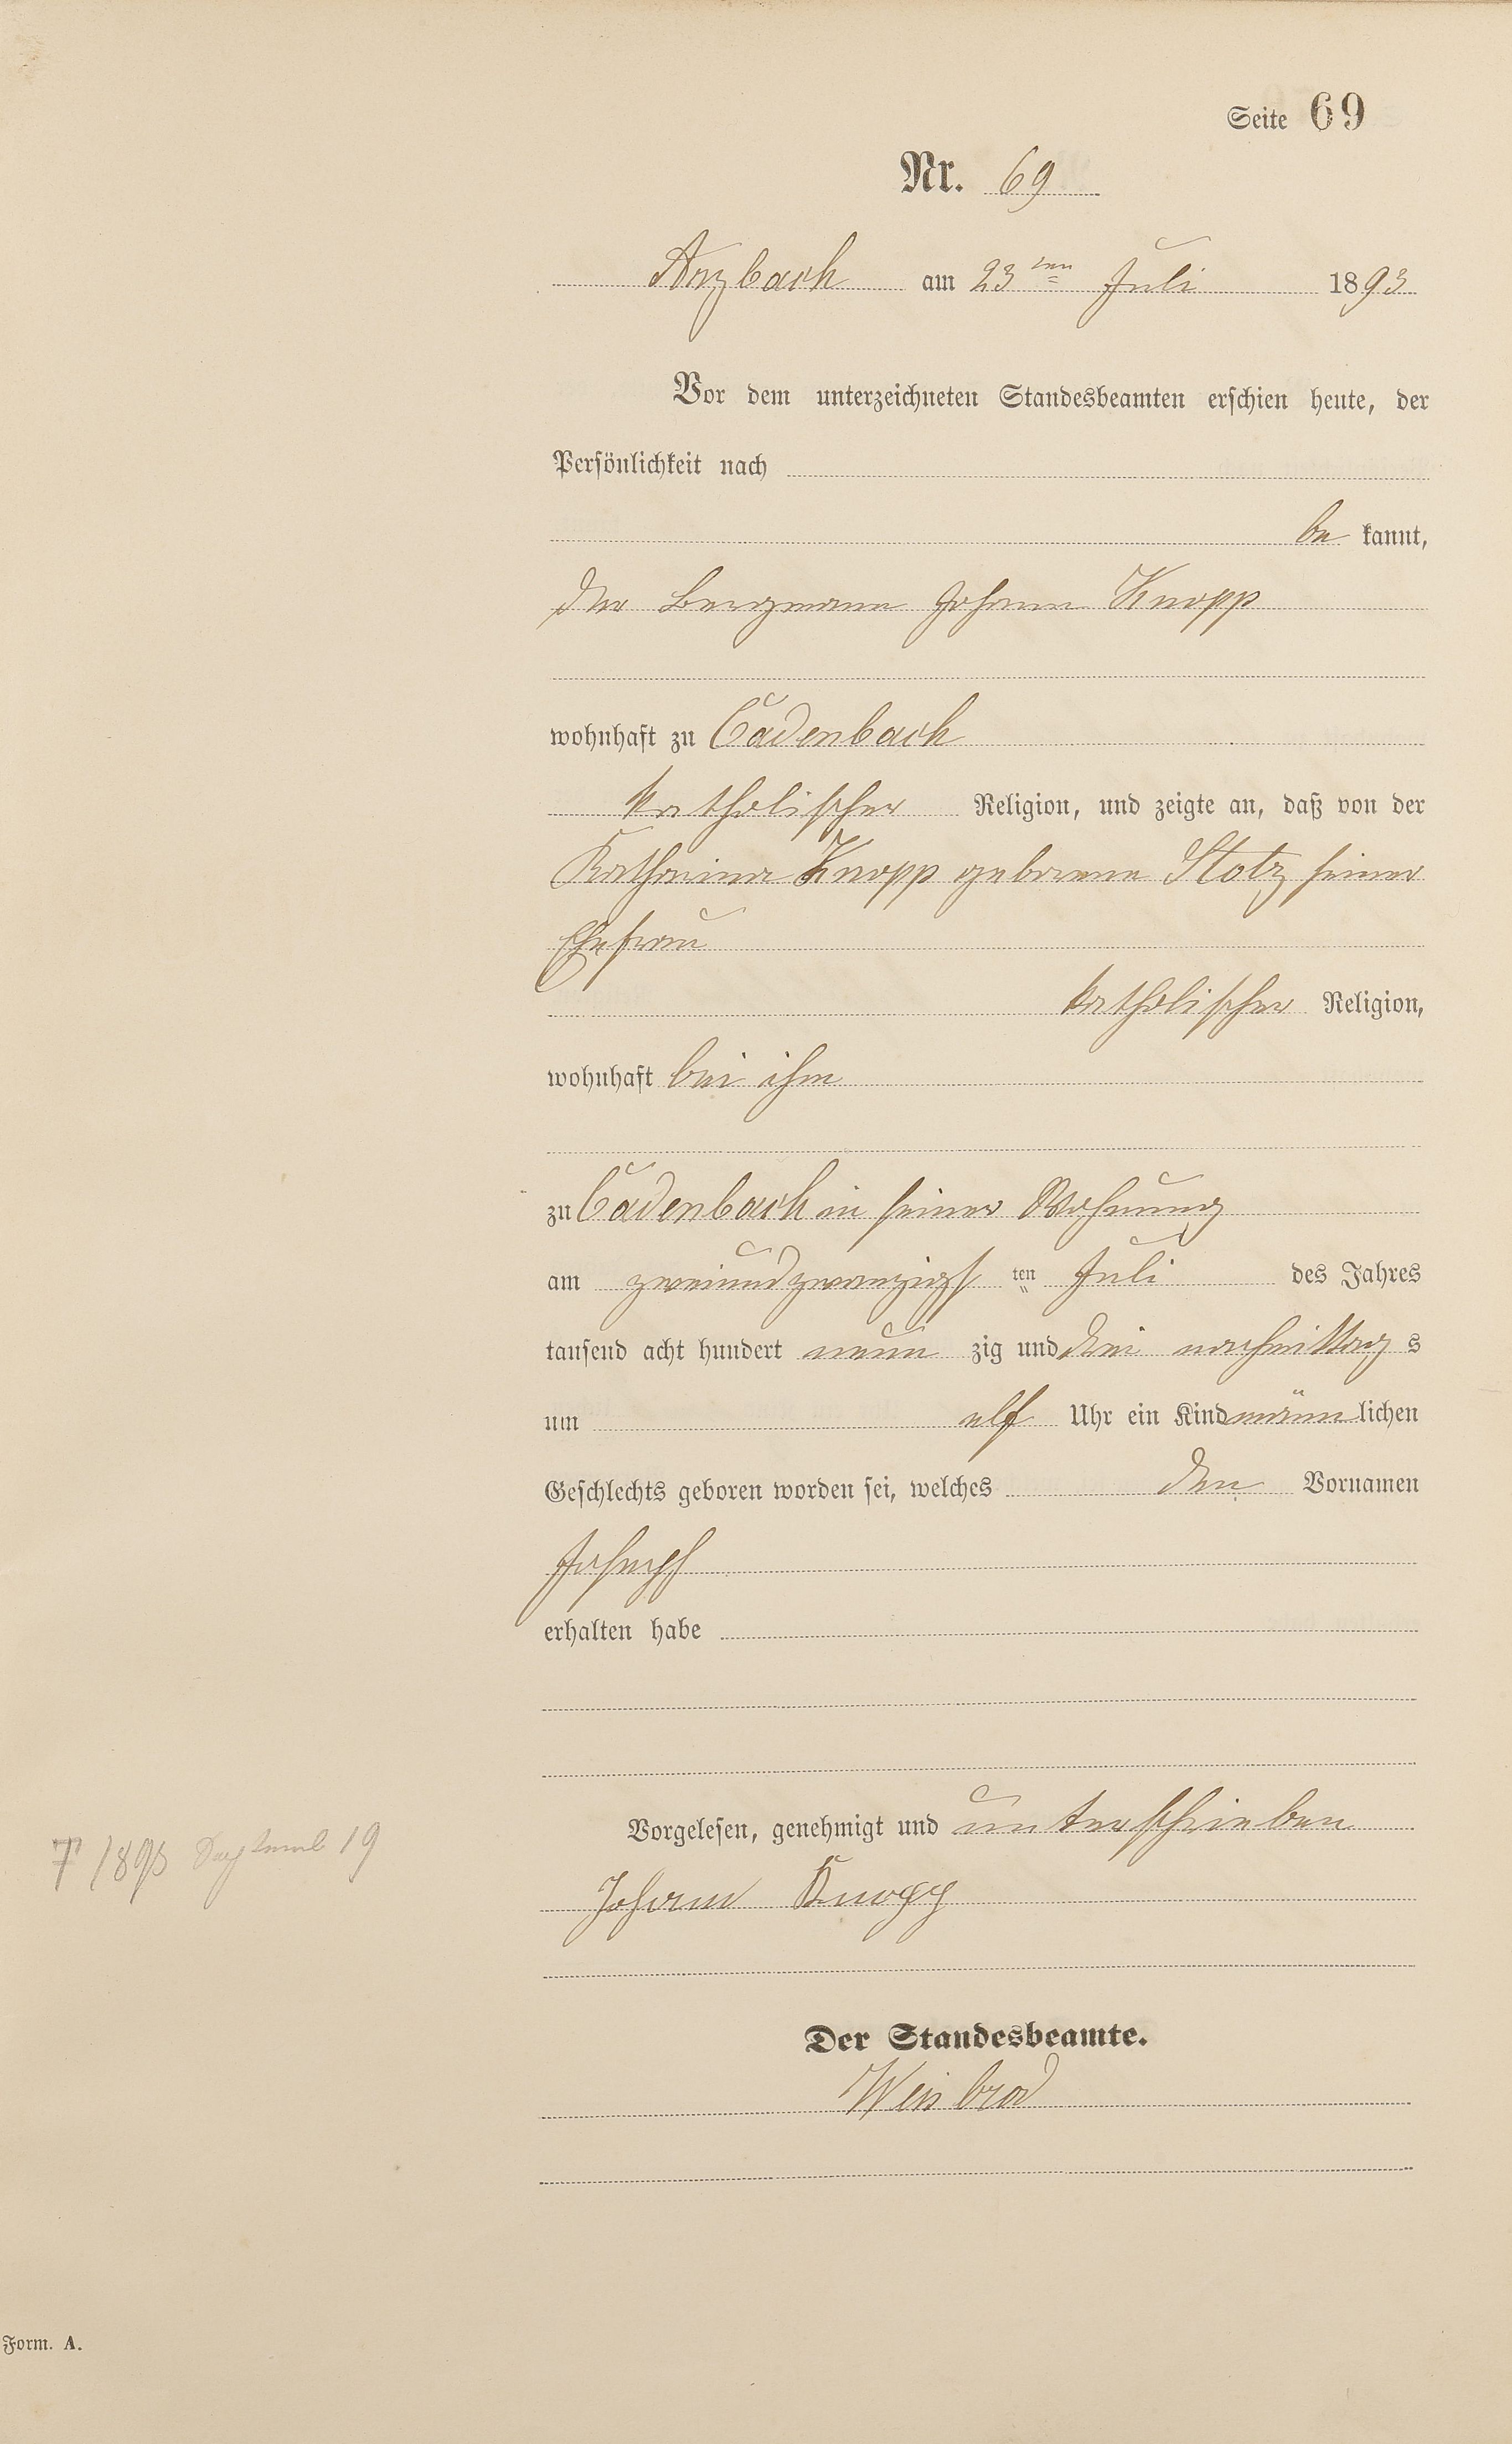 Seite 69
Nr. 69
Arzbach am 23ten Juli 1893
Vor dem unterzeichneten Standesbeamten erschien heute, der
Persönlichkeit nach
be kannt,
der Bergmann Johann Knopp
wohnhaft zu Cadenbach
katholischer Religion, und zeigte an, daß von der
Katharina Knopp geborene Stotz seiner
Ehefrau
katholischer Religion,
wohnhaft bei ihm
zu Cadenbach in seiner Wohnung
am zweiundzwanzigst ten Juli des Jahres
tausend acht hundert neun zig und drei nachmittag s
um elf Uhr ein Kind männ lichen
Geschlechts geboren worden sei, welches den Vornamen
Joseph
erhalten habe
Vorgelesen, genehmigt und unterschrieben
Johann Knopp
† 1893 19
Der Standesbeamte.
Weisbrod
Form. A.